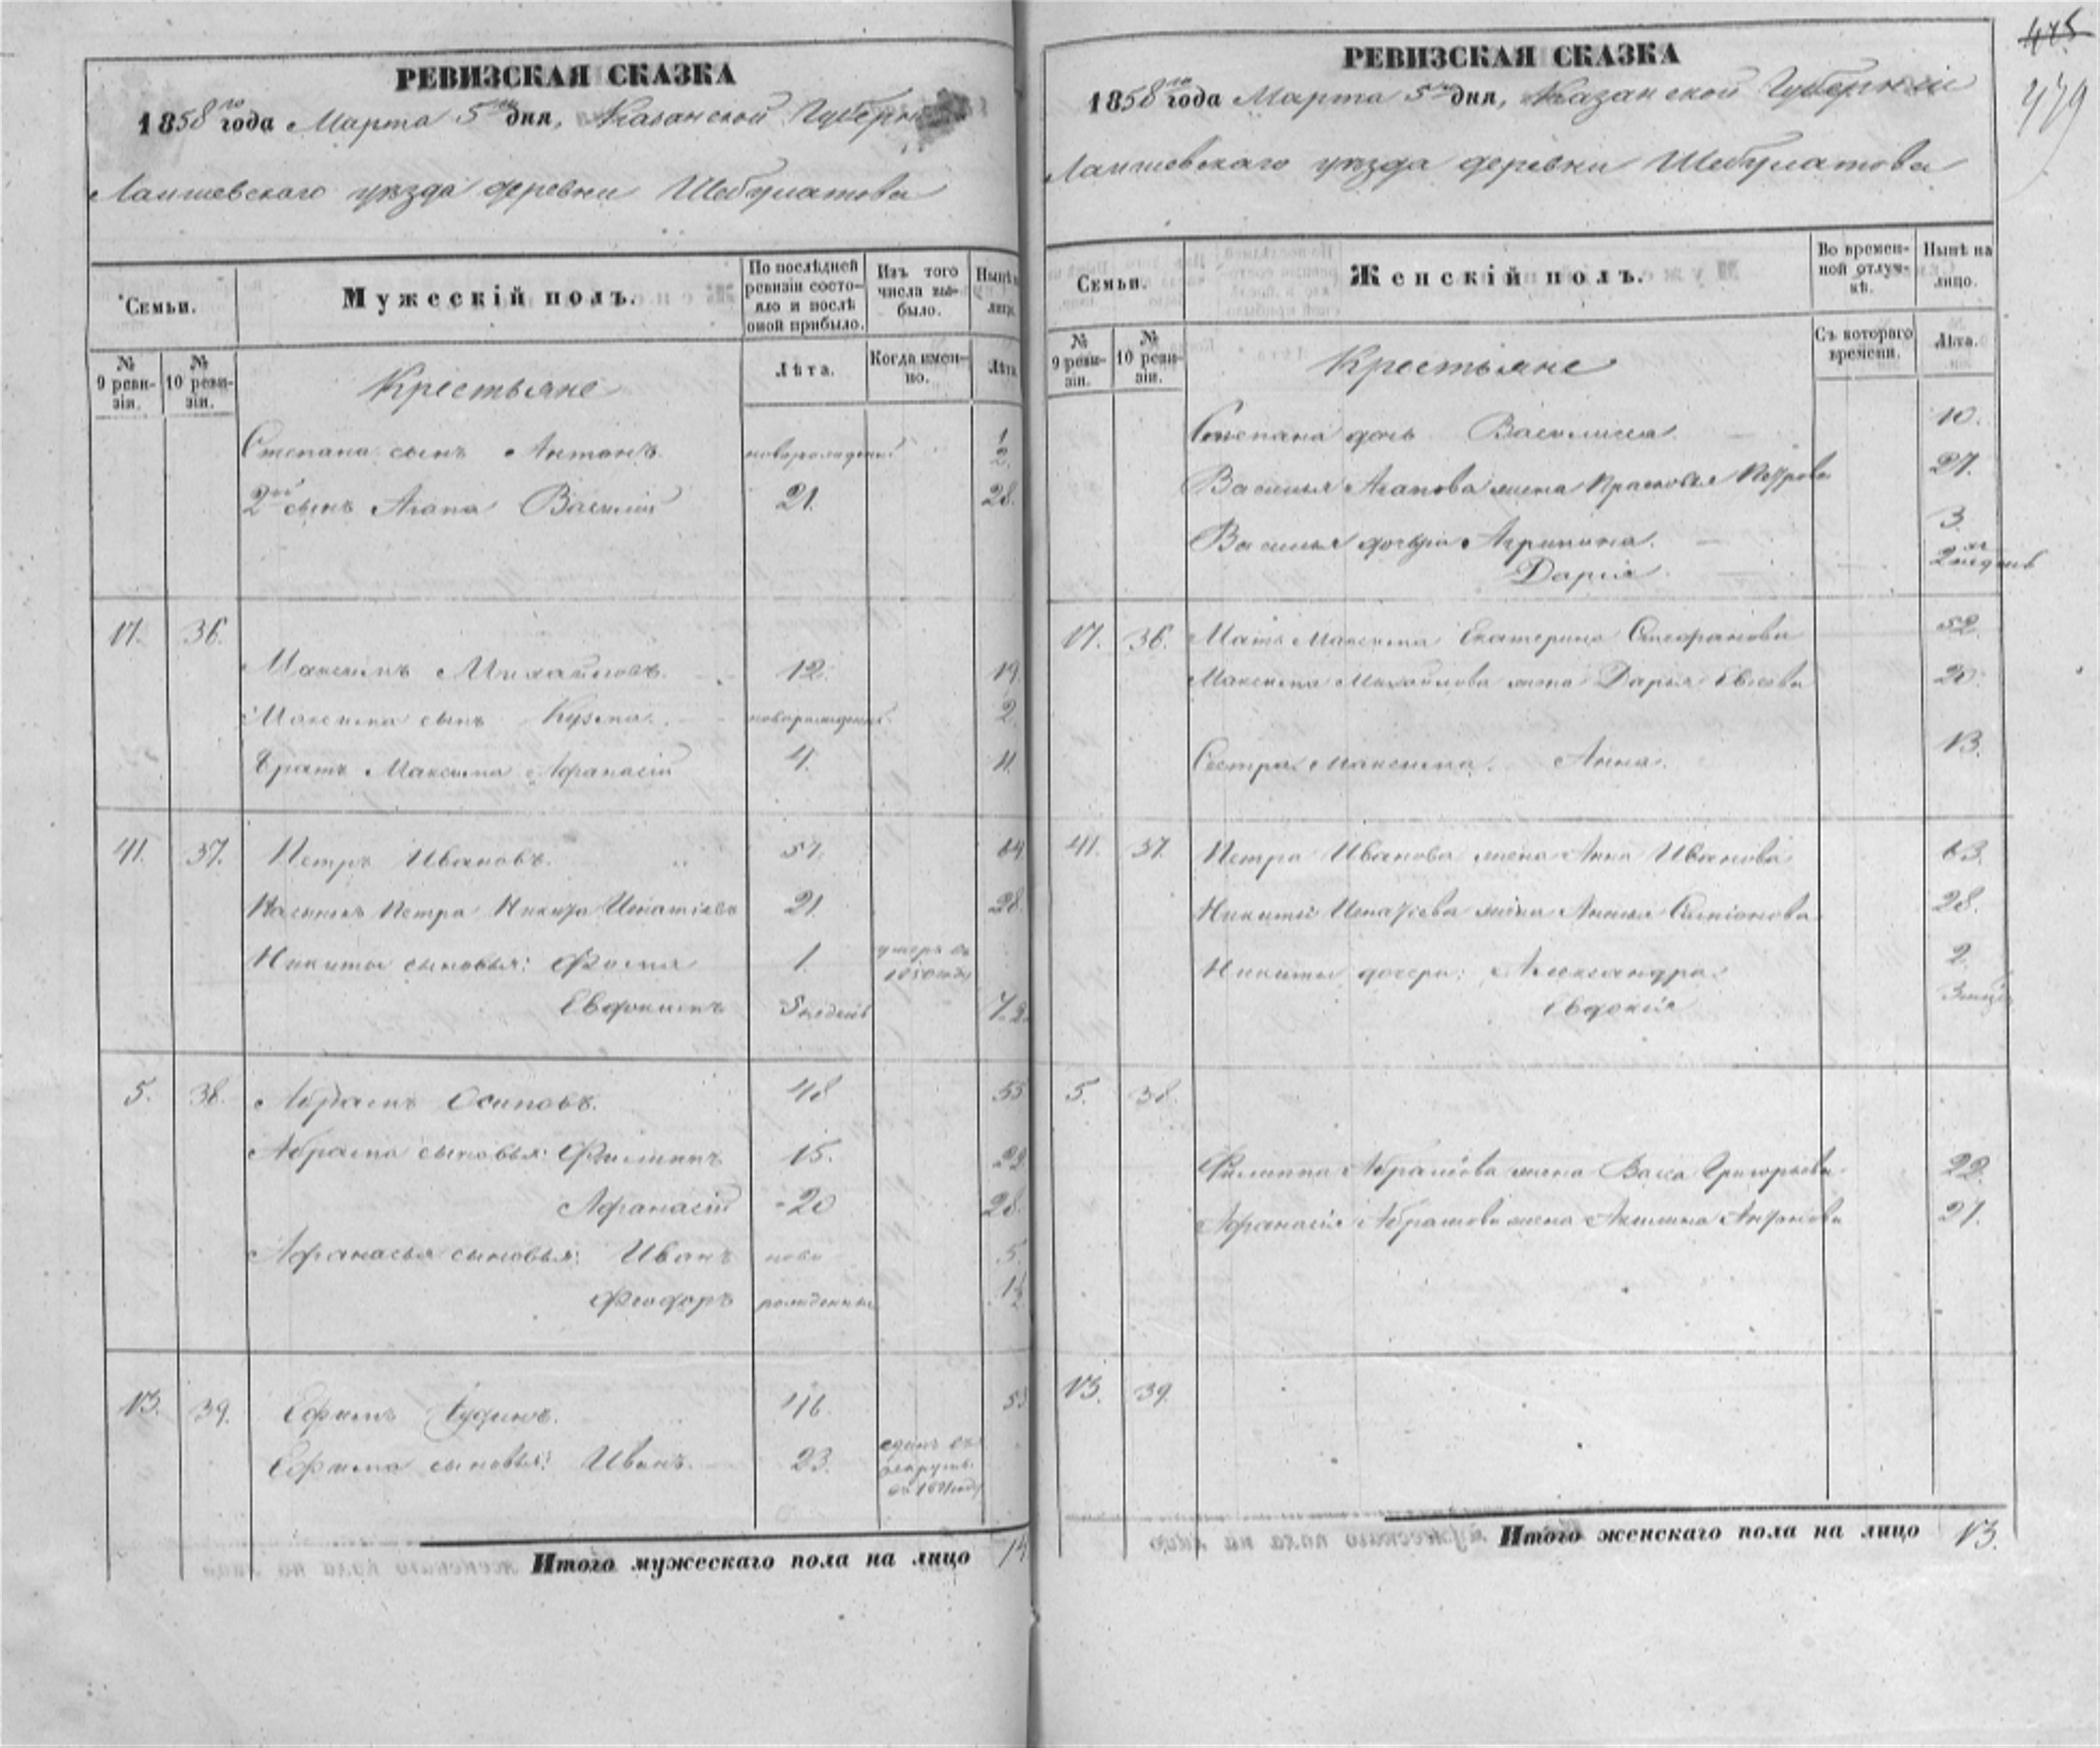 РЕВИЗСКАЯ СКАЗКА
1858го года Марта 5го дня, Казанской Губерн
Лаишевскаго уѣзда деревни Шебулатова
Семьи.
Мужескій полъ.
По послѣдней ревизіи состояло и послѣ оной прибыло.
Изъ того числа выбыло.
Нынѣ на лицо.
№ 9 ревизіи.
№ 10 ревизіи.
Крестьяне
Лѣта.
Когда именно.
Лѣта.
Степана сынъ Антонъ новорожденный 1/2
2ой сынъ Агапа Василий 21. 28.
17. 36.
Максимъ Михайловъ. 12. 19.
Максима сынъ Кузма. новорожденный 2
Братъ Максима Афанасій 4. 11.
41. 37. Петръ Ивановъ. 57. 64.
Пасынокъ Петра Никита Игнатьевъ 21. 28.
Никиты сыновья: Фома 1. умеръ въ 1850 году
Евдокимъ 5 недель 7
5. 38. Абрамъ Осиповъ. 48 55
Абрама сыновья: Филиппъ 15. 22.
Афанасій 20 28.
Афанасья сыновья: Иванъ ново 5.
Феодоръ рожденные
13. 39. Ефимъ 46. 53
Ефима сыновья: Иванъ. 23. въ рекруты въ году
Итого мужескаго пола на лицо 14
475
479
РЕВИЗСКАЯ СКАЗКА
1858го года Марта 5го дня, Казанской Губерніи
Лаишевскаго уѣзда деревни Шебулатова
Семьи.
Женскій полъ.
Во временной отлучкѣ.
Нынѣ на лицо.
№ 9 ревизіи.
№ 10 ревизіи.
Крестьяне
Съ котораго времени.
Лѣта.
Степана дочь Василиса. 10.
Василья Агапова жена Прасковья Петрова 27.
Василья дочери Агрипина. 3.
Дарія. 2хъ недель
17. 36. Мать Максима Екатерина Стефанова 52.
Максима Михайлова жена Дарья 20.
Сестра Максима. Анна. 13.
41. 37. Петра Иванова жена Анна Иванова 63.
Никиты Игнатьева жена Анна Симионова 28.
Никиты дочери: Александра. 2.
Евдокія
5. 38.
Филиппа Абрамова жена Васса Григорьева 22.
Афанасія Абрамова жена Акилина Антонова 27.
13. 39.
Итого женскаго пола на лицо 13.